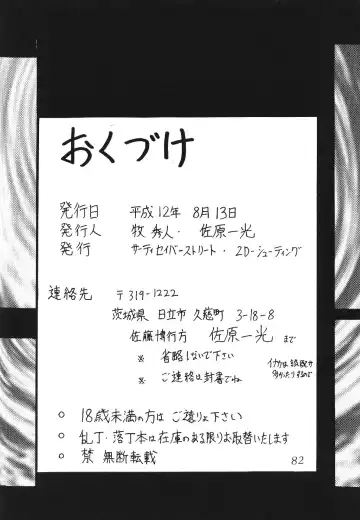 おくづけ
発行日 平成12年 8月13日
発行人 牧 秀人・佐原一光
発行 サーティセイバーストリート・2D-シューティング
連絡先 〒319-1222
茨城県 日立市 久慈町 3-18-8
佐藤博行方 佐原一光 まで
※ 省略しないで下さい
※ ご連絡は封書でね
○ 18歳未満の方は ご遠りょ下さい
○ 乱丁・落丁本は在庫のある限りお取替いたします
○ 禁 無断転載
82